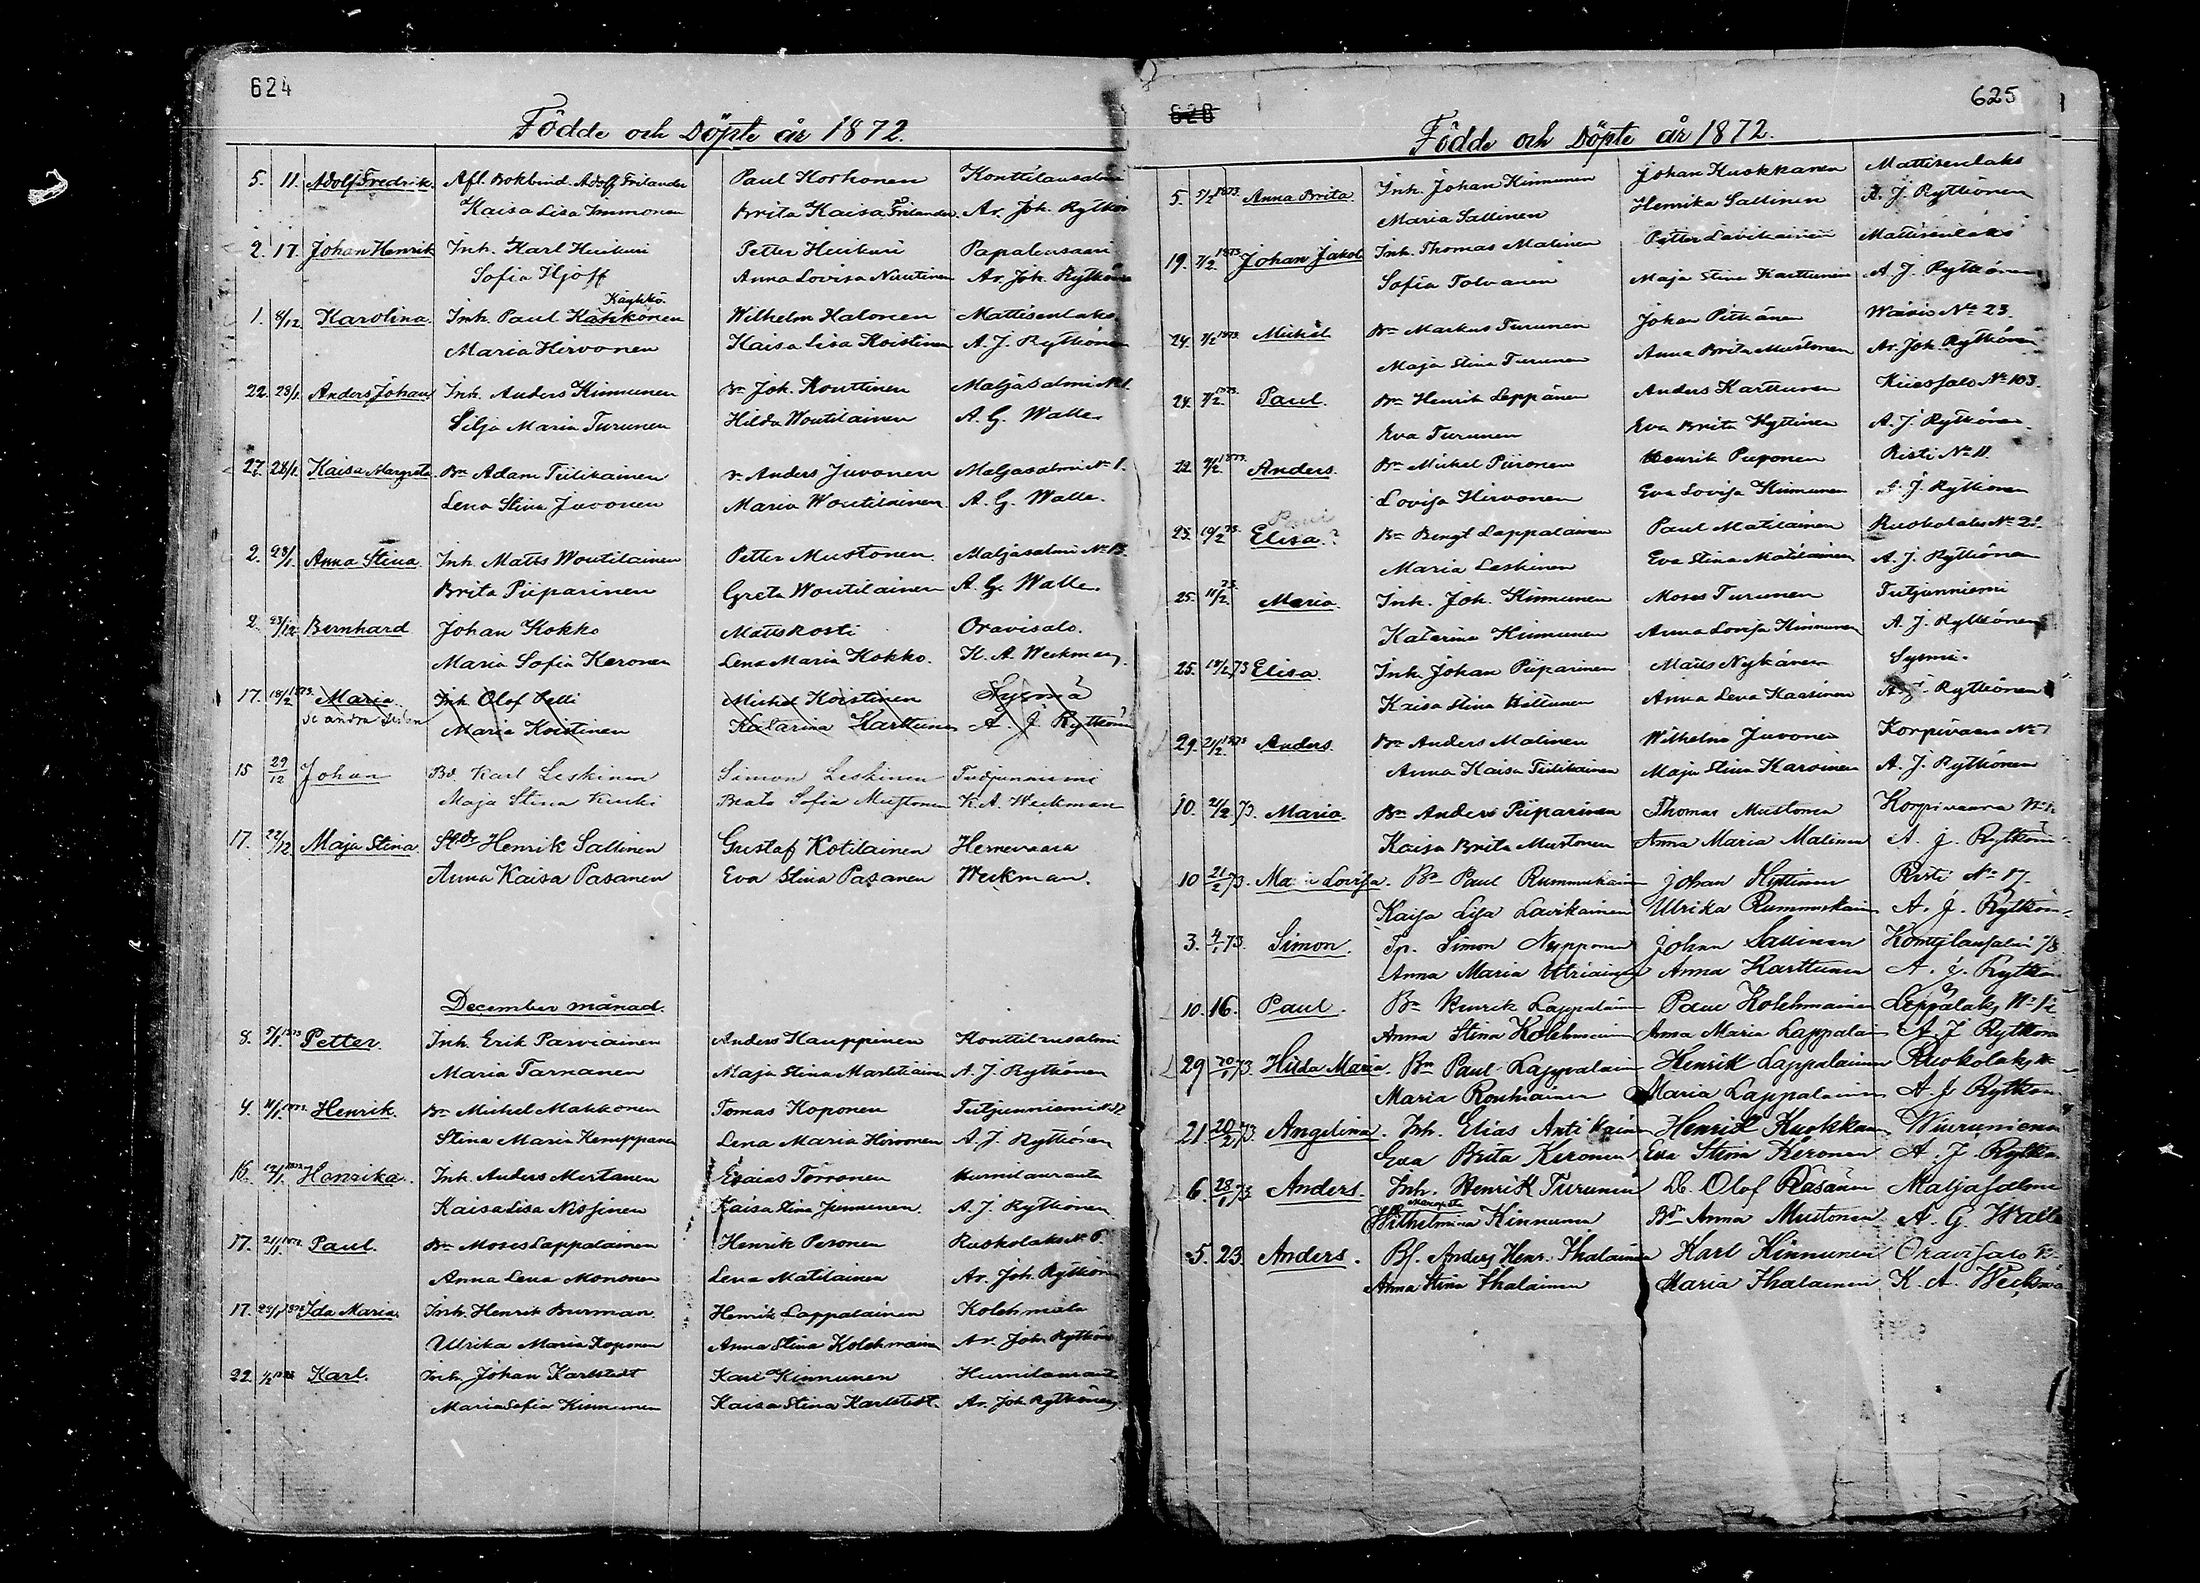 624
Födde och Döpte år 1872.
5. 11. Adolf Fredrik. Afl. Bokbind. Adolf Frilander Paul Korhonen Konttilansalmi
Kaisa Lisa Immonen Brita Kaisa Frilander Ar. Joh. Rytkön
2. 17. Johan Henrik Inh. Karl Huikuri Petter Huikuri Papalansaari
Sofia Hjoff Anna Lovisa Nuutinen Ar. Joh. Rytköne
Käykkö.
1. 8/12 Karolina. Inh. Paul Kähkönen Wilhelm Halonen Mattisenlaks
Maria Hirvonen Kaisa Lisa Koistinen A. J. Rytköne
22. 28/1. Anders Johan Inh. Anders Kinnunen Br Joh. Kouttinen Maljasalmi N 1.
Silja Maria Turunen Hilda Woutilainen A. G. Walle
27. 28/1. Kaisa Margreta Bn Adam Tiilikainen Br Anders Juvonen Maljasalmi No 1.
Lena Stina Juvonen Maria Woutilainen A. G. Walle.
2. 23/1. Anna Stina. Inh. Matts Woutilainen Petter Mustonen Maljasalmi No 13.
Brita Piiparinen Greta Woutilainen A. G. Walle.
2. 23/12 Bernhard Johan Kokko Matts Kosti Oravisalo.
Maria Sofia Keronen Lena Maria Kokko. K. A. Weckman.
17. 18/2 1873. Maria. Inh Olof Petti Michel Koistinen Sysmä
se andra sidan Maria Koistinen Katarina Karttunen A J Rytkönen
15 29/12 Johan Bd. Karl Leskinen Simon Leskinen Tudjunniemi
Maja Stina Kuuki Beata Sofia Mustonen K. A. Weckman
17. 22/12 Maja Stina. Henrik Sallinen Gustaf Kotilainen Hernevaara
Anna Kaisa Pasanen Eva Stina Pasanen Weckman.
December månad.
8. 5/1. 1873 Petter. Inh. Erik Parviainen Anders Kauppinen Konttilansalmi
Maria Tarnanen Maja Stina Martikainen A. J. Rytkönen
4. 11/1 Henrik. Bn Michel Makkonen Tomas Koponen Tutjunniemi N 32
Stina Maria Kemppanen Lena Maria Hirvonen A. J. Rytkönen
16. 12/1 Henrika. Inh. Anders Mertanen Esaias Törrönen Humilanranta
Kaisa Lisa Nissinen Kaisa Stina Jumunen. A. J. Rytkönen
17. 21/1 Paul. Bn Moses Lappalainen Henrik Pesonen Ruokolaks No 6
Anna Lena Mononen Lena Matilainen Ar. Joh. Rytkön
17. 25/1 Ida Maria. Inh. Henrik Burman. Henrik Lappalainen Kolehmala
Ulrika Maria Koponen Anna Stina Kolehmainen Ar. Joh. Rytkön
22. 1/2 Karl. Inh. Johan Karlstedt Karl Kinnunen Humilanrant
Maria Sofia Kinnunen Kaisa Stina Karlstedt. Ar. Joh. Rytkönen
628
625
Födde och Döpte år 1872.
5. 5/2 1873. Anna Brita Inh. Johan Kinnunen Johan Kuokkanen Mattisenlaks
Maria Sallinen Henrika Sallinen A. J. Rytkönen
19. 7/2. 1873 Johan Jakob Inh. Thomas Malinen Petter Lavikainen Mattisenlaks
Sofia Tolvanen Maja Stina Karttunen A. J. Rytkönen
24. 7/2 1873. Michel Bn Markus Turunen Johan Pitkänen Wäivis No 23.
Maja Stina Turunen Anna Brita Mustonen Ar. Joh. Rytkönen
24. 7/2. 1873. Paul. Bn Henrik Leppänen Anders Karttunen Kiiessalo No 103.
Eva Turunen Eva Brita Hyttinen A. J. Rytkönen
22. 9/2. 1873. Anders. Bn Michel Piironen Henrik Piiponen Risti No 11.
Lovisa Hirvonen Eva Lovisa Kinnunen A. J. Rytkönen
25. 10/2 73. Elisa.? Bn Bengt Lappalainen Paul Matilainen Ruokolaks No 21.
Maria Leskinen Eva Stina Matilainen A. J. Rytköne
25. 11/2. 73. Maria. Inh. Joh. Kinnunen Moses Turunen Tutjunniemi
Katarina Kinnunen Anna Lovisa Kinnunen A. J. Rytkönen
25. 18/2 73 Elisa. Inh. Johan Piiparinen Matts Nykänen Sysmä.
Kaisa Stina Hiltunen Anna Lena Kaasinen A. J. Rytkönen
29. 21/2 1873 Anders. Bn Anders Malinen Wilhelm Juvonen Korpivaara No 7
Anna Kaisa Tiilikainen Maja Stina Karvinen A. J. Rytkönen
10. 21/2 73. Maria. Bn Anders Piiparinen Thomas Mustonen Korpivaara
Kaisa Brita Mustonen Anna Maria Malinen A. J. Rytkön
10 21/2 73. Maria Lovisa. Bn Paul Rummukain Johan Hyttinen Risti No 17.
Kaisa Lisa Lavikainen Ulrika Rummukain A. J. Rytkön
3. 4/1 73. Simon. Tp. Simon Nypponen Johan Sallinen Konttilansalmi 7/8
Anna Maria Utriainen Anna Karttunen A. J. Rytkön
10. 16. Paul. Bn Henrik Lappalain Paul Kolehmainen Leppälaks No 1/2
Anna Stina Kolehmainen Anna Maria Lappalai A. J Rytköne
29 20/1 73. Hilda Maria. Bn Paul Lappalain Henrik Lappalainen Ruokolaks N
Maria Ronkainen Maria Lappalainen A. J Rytkön
21 20/2 73. Angelina. Inh. Elias Antikain Henrik Kuokkan Wiuruniemi
Eva Brita Keronen Eva Stina Keronen A. J. Rytkö
6. 28/1 73 Anders. Inh. Henrik Turunen Dr. Olof Räsänen Maljasalmi
Margreta
Wilhelmina Kinnunen Bdr Anna Mustonen A. G. Walle
5. 23. Anders. Bf. Anders Henr. Ihalainen Karl Kinnunen Oravisalo N
Anna Stina Ihalainen Maria Ihalainen K. A. Weckma